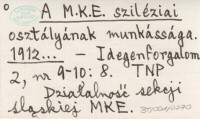 A M.K.E. sziléziai
osztályának munkássága.
1912... – Idegenforgalom
2, nr 9-10: 8. TNP
Działalność sekcji
śląskiej MKE.